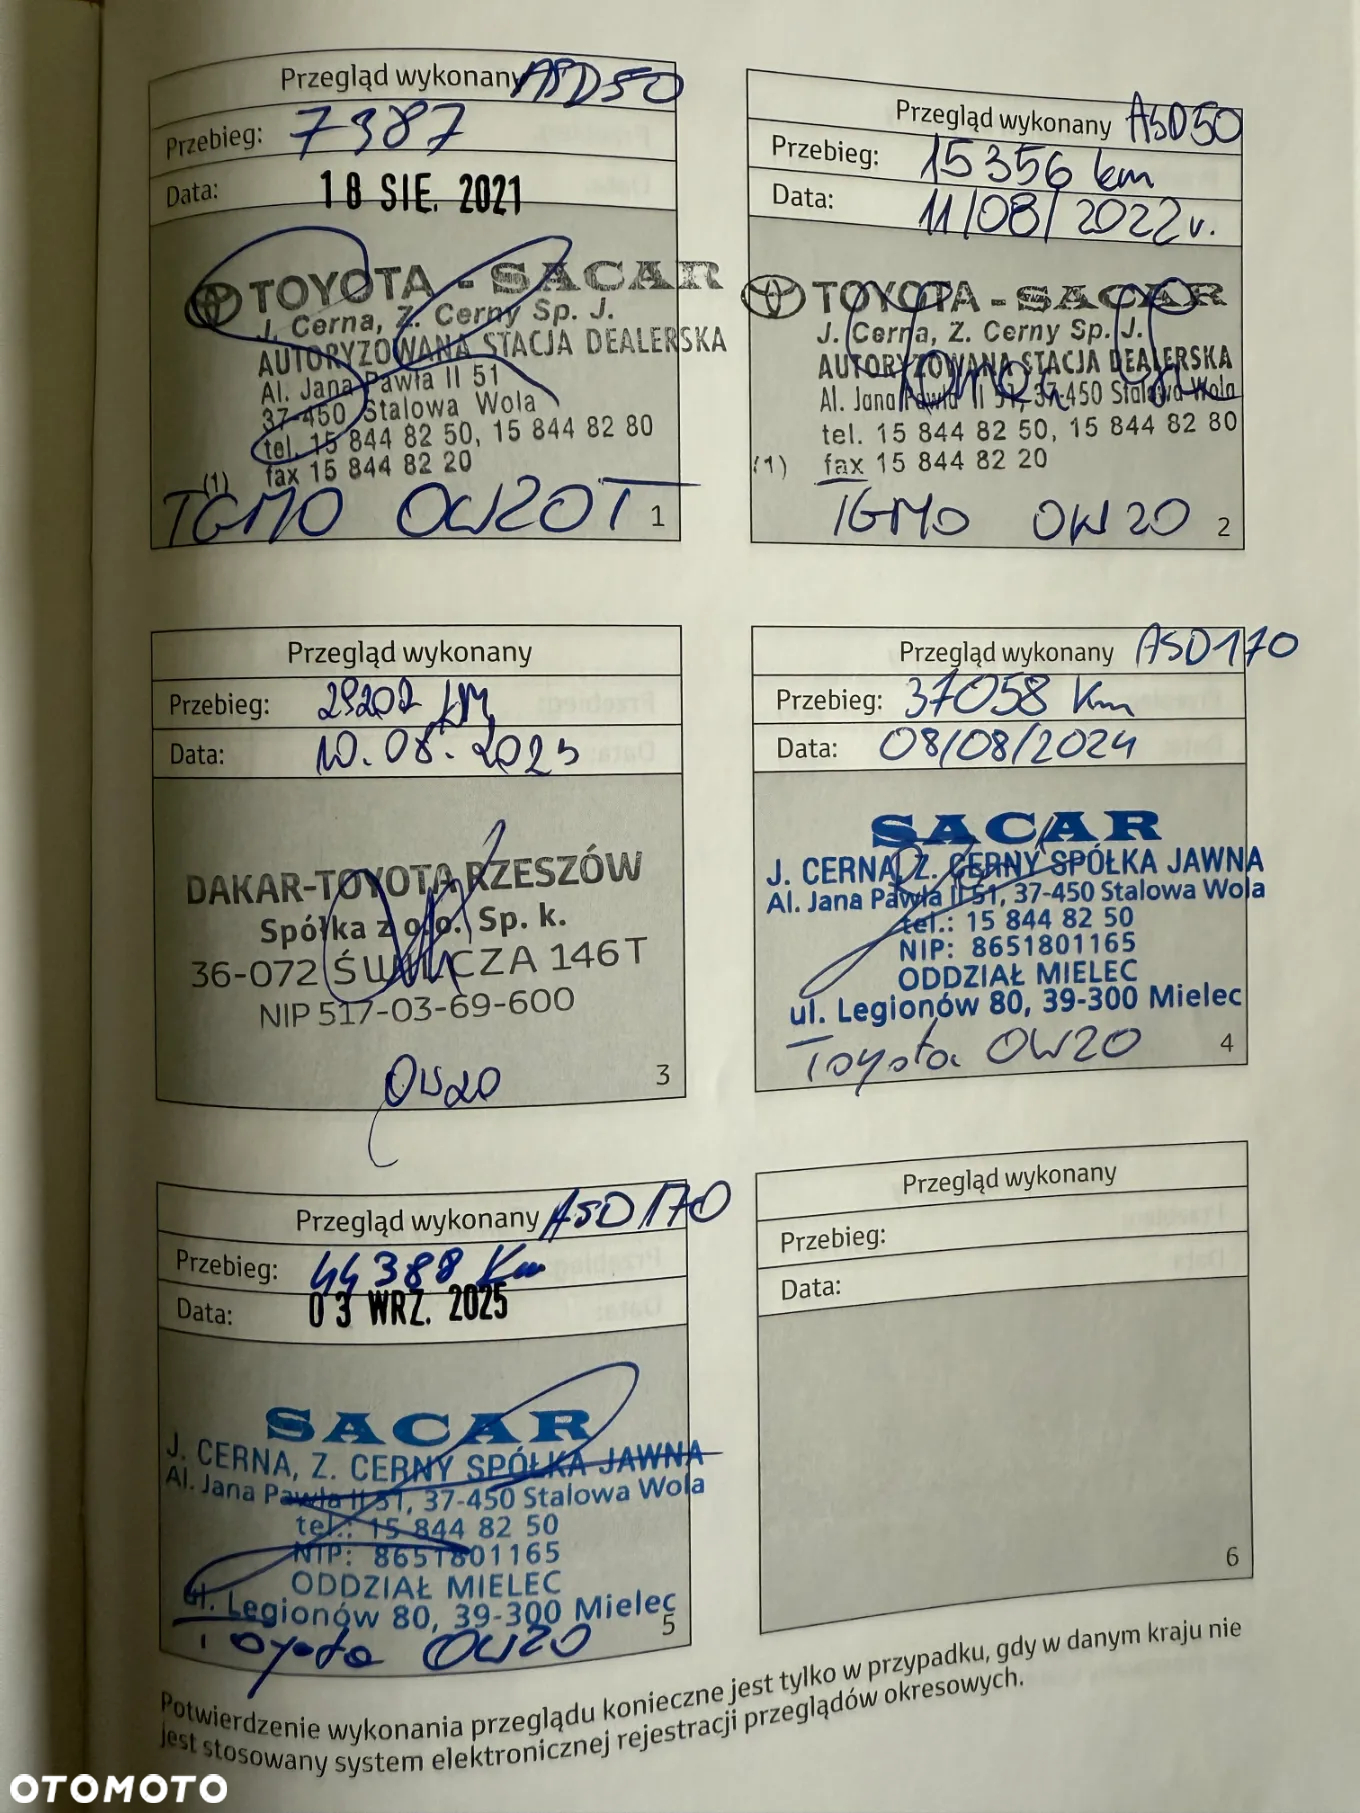 Przegląd wykonany ASD50
Przebieg: 7387
Data: 18 SIE. 2021
TOYOTA - SACAR
J. Cerna, Z. Cerny Sp. J.
AUTORYZOWANA STACJA DEALERSKA
Al. Jana Pawła II 51
37-450 Stalowa Wola
tel. 15 844 82 50, 15 844 82 80
(1) fax 15 844 82 20
TGMO OW20
1
Przegląd wykonany ASD50
Przebieg: 15356 km
Data: 11/08/2022r.
TOYOTA - SACAR
J. Cerna, Z. Cerny Sp. J.
AUTORYZOWANA STACJA DEALERSKA
Al. Jana Pawła II 51, 37-450 Stalowa Wola
tel. 15 844 82 50, 15 844 82 80
(1) fax 15 844 82 20
TGMO OW20
2
Przegląd wykonany
Przebieg: 29202 km
Data: 10.08.2023
DAKAR-TOYOTA RZESZÓW
Spółka z o.o. Sp. k.
36-072 ŚWILCZA 146T
NIP 517-03-69-600
OW20
3
Przegląd wykonany ASD170
Przebieg: 37058 Km
Data: 08/08/2024
SACAR
J. CERNA, Z. CERNY SPÓŁKA JAWNA
Al. Jana Pawła II 51, 37-450 Stalowa Wola
tel.: 15 844 82 50
NIP: 8651801165
ODDZIAŁ MIELEC
ul. Legionów 80, 39-300 Mielec
Toyota OW20
4
Przegląd wykonany ASD170
Przebieg: 44388 Km
Data: 03 WRZ. 2025
SACAR
J. CERNA, Z. CERNY SPÓŁKA JAWNA
Al. Jana Pawła II 51, 37-450 Stalowa Wola
tel.: 15 844 82 50
NIP: 8651801165
ODDZIAŁ MIELEC
ul. Legionów 80, 39-300 Mielec
Toyota OW20
5
Przegląd wykonany
Przebieg:
Data:
6
Potwierdzenie wykonania przeglądu konieczne jest tylko w przypadku, gdy w danym kraju nie
jest stosowany system elektronicznej rejestracji przeglądów okresowych.
OTOMOTO